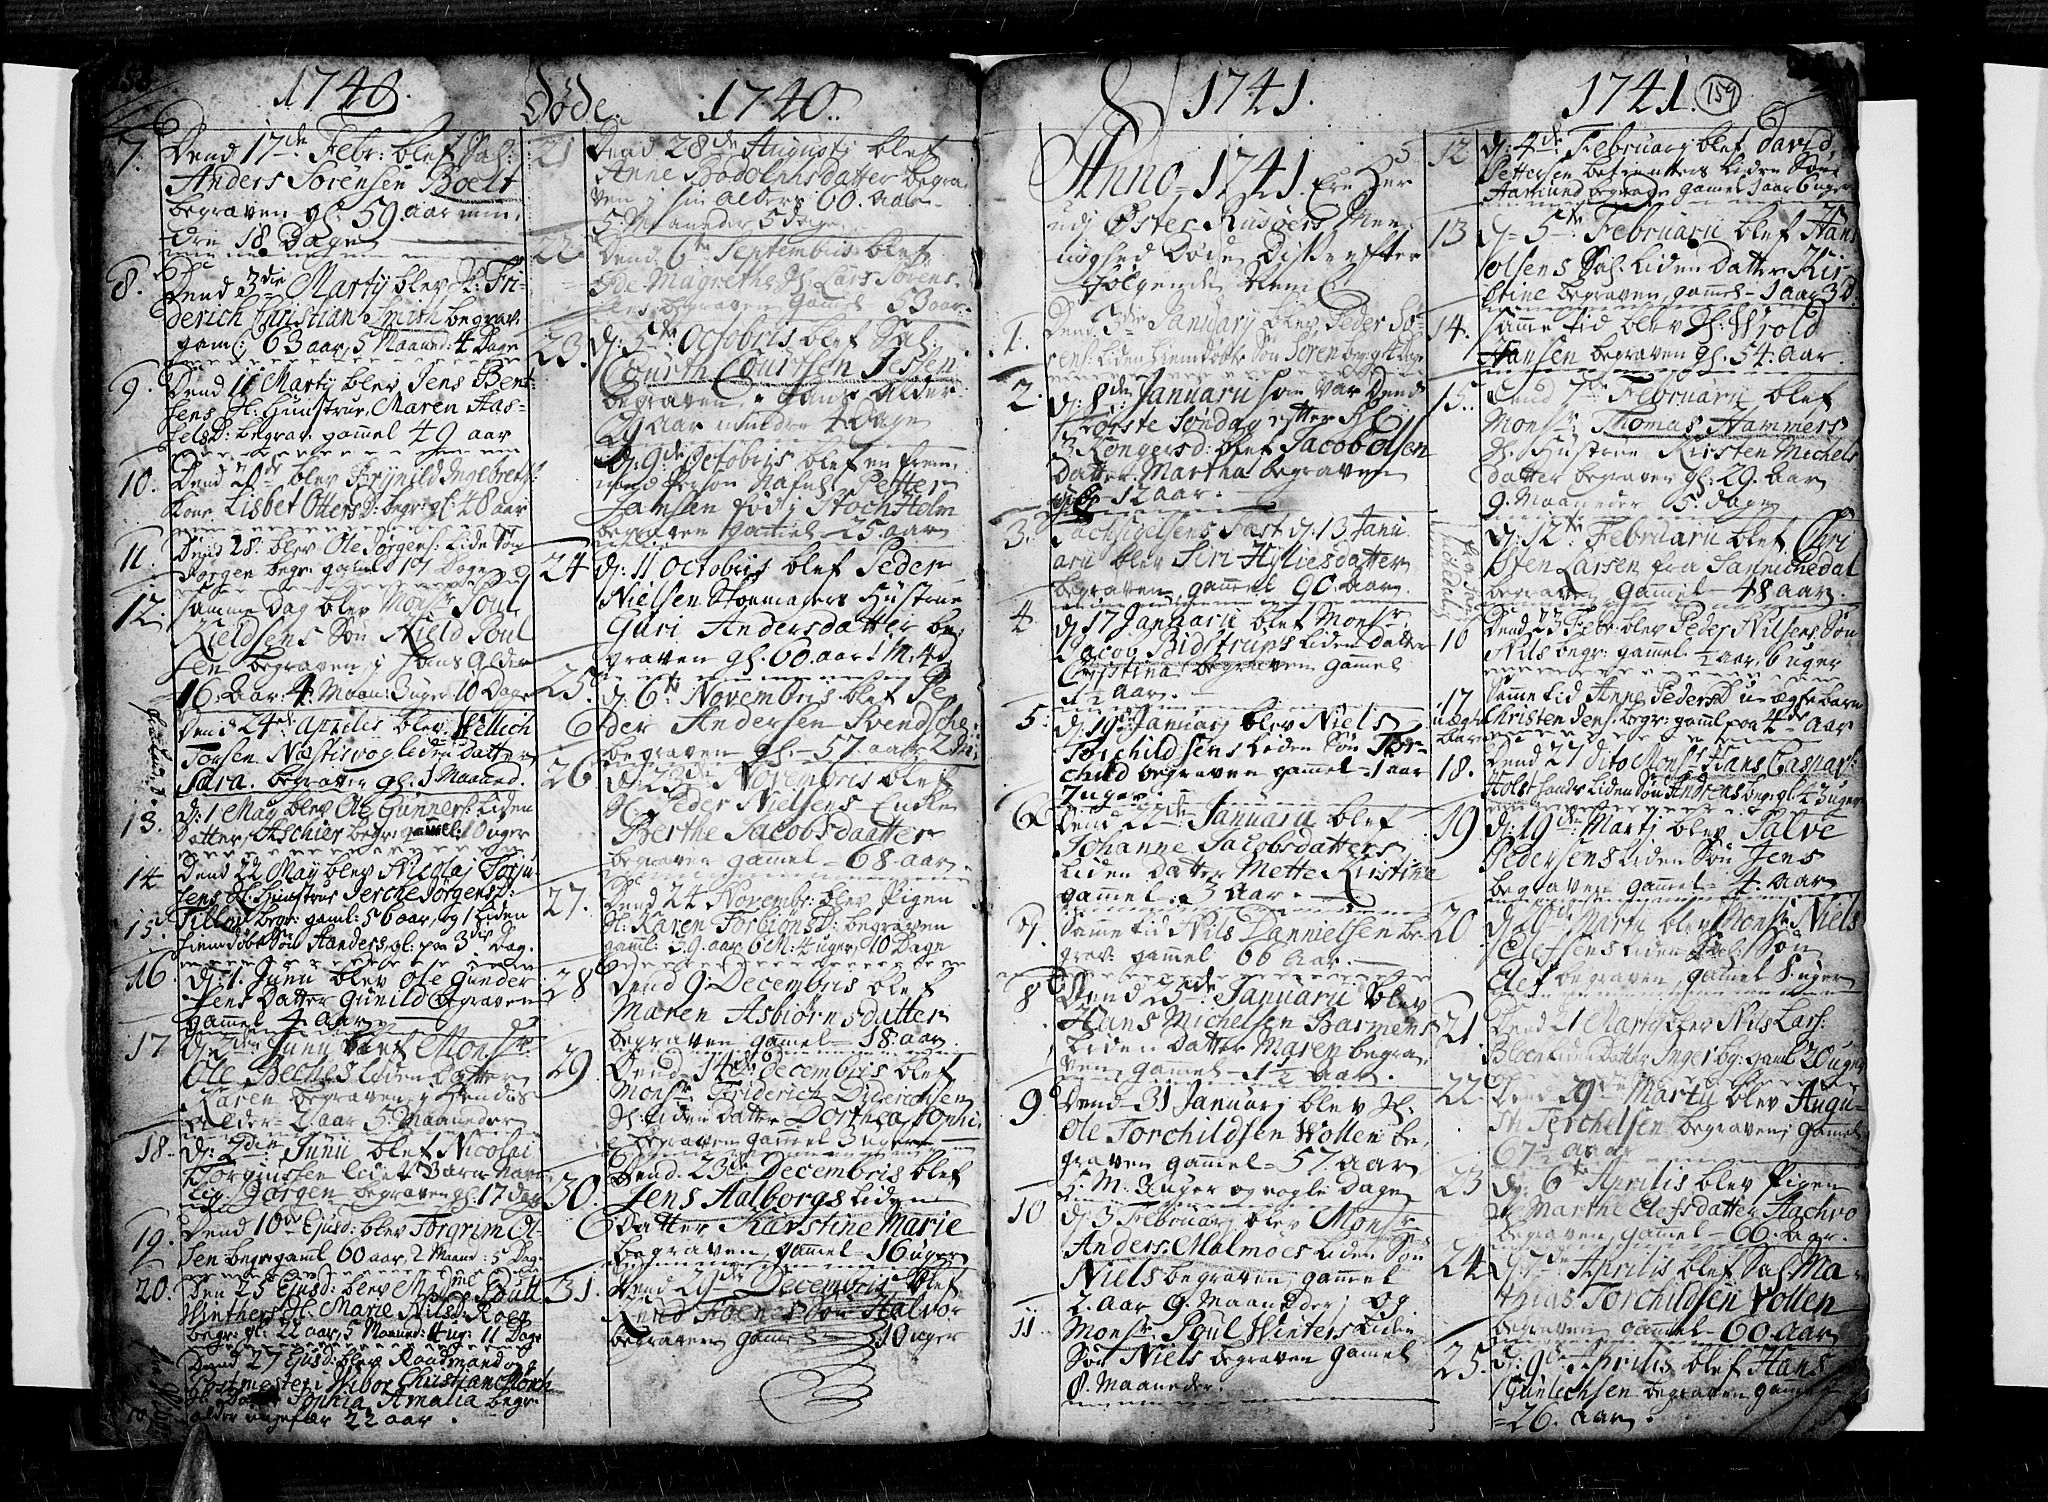 1740.
7. Dend 17de Febr: blef Sal:
Anders Sørensen Boelt
begraven gl: 59 aar min,
dre 18 Dage
8. Dend 3die Martij blev Hr: Fri-
derich Christian Smith begrav:
gaml: 63 aar, 5 Maaned: 4 Dage
9. Dend 11 Martij blev Jens Bent
sens H: Hustrue Maren Aas-
selsD: begrav: gammel 49 aar
10. Dend blev Brynild Ingebrets:
Kone Lisbet OttersD: begr: gl: 48 aar
11. Dend 28: blev Ole Jørgens: Lide Søn
Jørgen begr: gamel 17 Dage
12. Samme Dag blev Monsr: Poul
Kieldsens Søn Kield Poul
sen begraven j hans Alder
16 Aar 4: Maan: 3 uger 10 Dage
Dend 24de Aprilis blev Wellich
Torsen Næstisvog liden Datter
Sara begraven gl: 1 Maaned.
13. d: 1 Maij blev Ole Gunners: liden
Datter Aschier begr: gamel: 10 uger
14 Dend 22 May blev Nicolaj Torju-
sens H: Hustrue Jerche JørgensD:
begr: gaml: 56 aar, og 1 liden
15 hiemdøbt Søn Anders gl: paa 3die Dag.
16. d: 1. Junij blev Ole Gunder
sens Datter Gunild begraven
gammel 4 aar
17 d: 2den Junij blef Monsr.
Ole Beches liden Datter
Karen begraven j hendis
alder 2 aar 5 Maaneder
18. d: 2den Junij blef Nicolai
Torgiussen lidet Barn Navn
lig. Jørgen begraven gl: 17 dage
19. Dend 10de Ejusd: blev Torgrim Ol-
sen begr: gaml 60 aar, 2 Maand: 5 Dage
20. Den 25 Ejusd: blev Poul
Winthers H: Marie NilsD: Roeg
begr: gl: 22 aar, 5 Maaned: 4 ug: 11 Dage
Dend 27 Ejusd: blev Raadmand og
Postmester i Wiborg Christian
Sophia Amalia begr:
alder ungefær 22 aar.
Døde 1740.
21 Dend 28de Augustj blef
Anne Bodolphsdatter begra
ven j sin alders 60. aar
5 Maaneder 5 dage
22 Dend 6te Septembris blef
Magrethe Hr. Lars
begraven gamel 53 aar
23. d: 5de Octobris blef Sal:
Courth Courtsen Jessen
begraven j hans Alder
aar mindre 4 Dage
d: 9de Octobris blef en frem-
med Person Nafnl Petter
Jansan fød j Stockholm
begraven gamel 25. aar
24 d: 11 Octobris blef Peder
Nielsen Skoemagers Hustrue
Guri Andersdatter be-
graven gl: 60 aar 1 M: 4 d
25. d: 6te Novembris blef Pe-
der Andersen Svendsche
begraven gl- 57. aar
26 d: 23de Novembris blef
Hr Peder Nielsens Enke
Berthe Jacobsdaatter
begraven gamel- 68. aar
27. Dend 24 Novembr: blev Pigen
Karen TorbiønsD: begraven
gaml: 39. aar 6 M: 4 uger 10 Dage
28 Dend 9. Decembris blef
Maren Asbiørnsdatter
begraven gamel- 18. aar.
29. Dend 14de Decembris blef
Monsr Friderich Diderichsen
H: liden Datter Dorthea Sophi
e begraven gamel 3 uger
30. Dend. 23de Decembris blef
Jens Aalborgs liden
datter Karstine Marie
begraven gamel- 16 uger
31. Dend 29de Decembris blef
Knud Søn Halvor
begraven gamel- 10 uger
1741. 1741. 159
Anno 1741. Ere Her
udj Øster Riisøers Men
nighed Døde Disse efter
følgende Nemlig
1. Dend 3die Januarij blev Peder Sø-
rens: liden hiemdøbte Søn Søren begr: gl: Dage
2. d: 8de Januarij som var Dend
første Søndag efter Hl:
3 Kongersd: blef Jacob Olsen
datter Martha begraven
gl- 12 aar.
3. Tachsigelsens Fæst d: 13 Janu
arij blev Seri Hylliesdatter
begraven, gammel 90. aar.
4 d: 17 Januarij blef Monsr.
Jacob Bidstrups liden datter
Christina begraven gamel
1½ aar
5. d: 19de Januarj blev Niels
Torchildsens liden Søn Tor-
child begraven gamel 1 aar
7 uger
6. Dend 22de: Januarij blef
Johanne Jacobsdatters
liden datter Mette Kirstina
gammel 3 aar.
7. Samme tid Nils Dannielsen be-
grav: gamel: 66 Aar.
8 Dend 25de Januarij blev
Hans Michelsen Barmens
liden datter Maren begra-
ven, gamel- 1½ Aar.
9 Dend 31 Januarj blev Hr:
Ole Torchildsen Vollen be-
graven gamel- 57. aar
5. M: 2 uger og nogle Dage
10 d: 3 Februarj blev Monsr
Anders Malmöes liden Søn
Niels begraven gammel
2. aar 9. Maaneder j og
11 Monsr Poul Winters liden
Søn Niels begraven gamel
8. Maaneder.
12 d: 4de: Februarj blef David
Pettersen betienters liden Søn
Aamund begrave gamel 1 aar 6 uger
13 d: 5te Februarij blef Hans
Olsens Sal. liden datter Kir-
stine begraven, gammel 1 aar 3 d.
14. Samme tid blev Hr: Wrold
Hansen begraven gl. 54. aar
15. Dend 7de Februarij blef
Monsr: Thomas Hammers
H: Hustrue Kirsten Michels
datter begraven gl: 29. aar
9. Maaneder 5. dage
d: 12te Februarij blef Chri
sten Larsen fra Sannichedal
begraven Gammel- 48 aar.
16 Dend 23 Febr: blev Peder Nilsens Søn
Nils begr: gamel ½ aar, 6 uger
17 Samme tid Anne PedersD: u-ægte barn
Christen Jens: begr: gaml paa 4de Aar
18. Dend 27 Dito Monsr Hans Caspar:
Holst hands liden Søn Andreas begr. gl 43 uger
19 d: 19de: Martj blev Salve
Pedersens liden Søn Jens
begraven gammel- 4. aar
20 d: 20de Martij blev Monsr Niels
Elefsens liden Søn
Elef begraven, gamel 8. uger
21 Dend 21 Martij blev Nils Lars:
Bloch liden datter Inger bg: gaml 20 uger
22. Dend 29de Martij blev Augu-
sti Terchelsen begraven gamel
67½ aar
23 d: 6te Aprilis blev Pigen
Marthe Elefsdatter Aachvo
begraven, gamel- 66. aar.
24. d: 7de Aprilis blef Sal: Ma-
thias Torchildsen Vollen
begraven, gammel- 60. aar
25. d: 9de Aprilis blef Hans
Gunlechsen begraven gamel
26. aar.